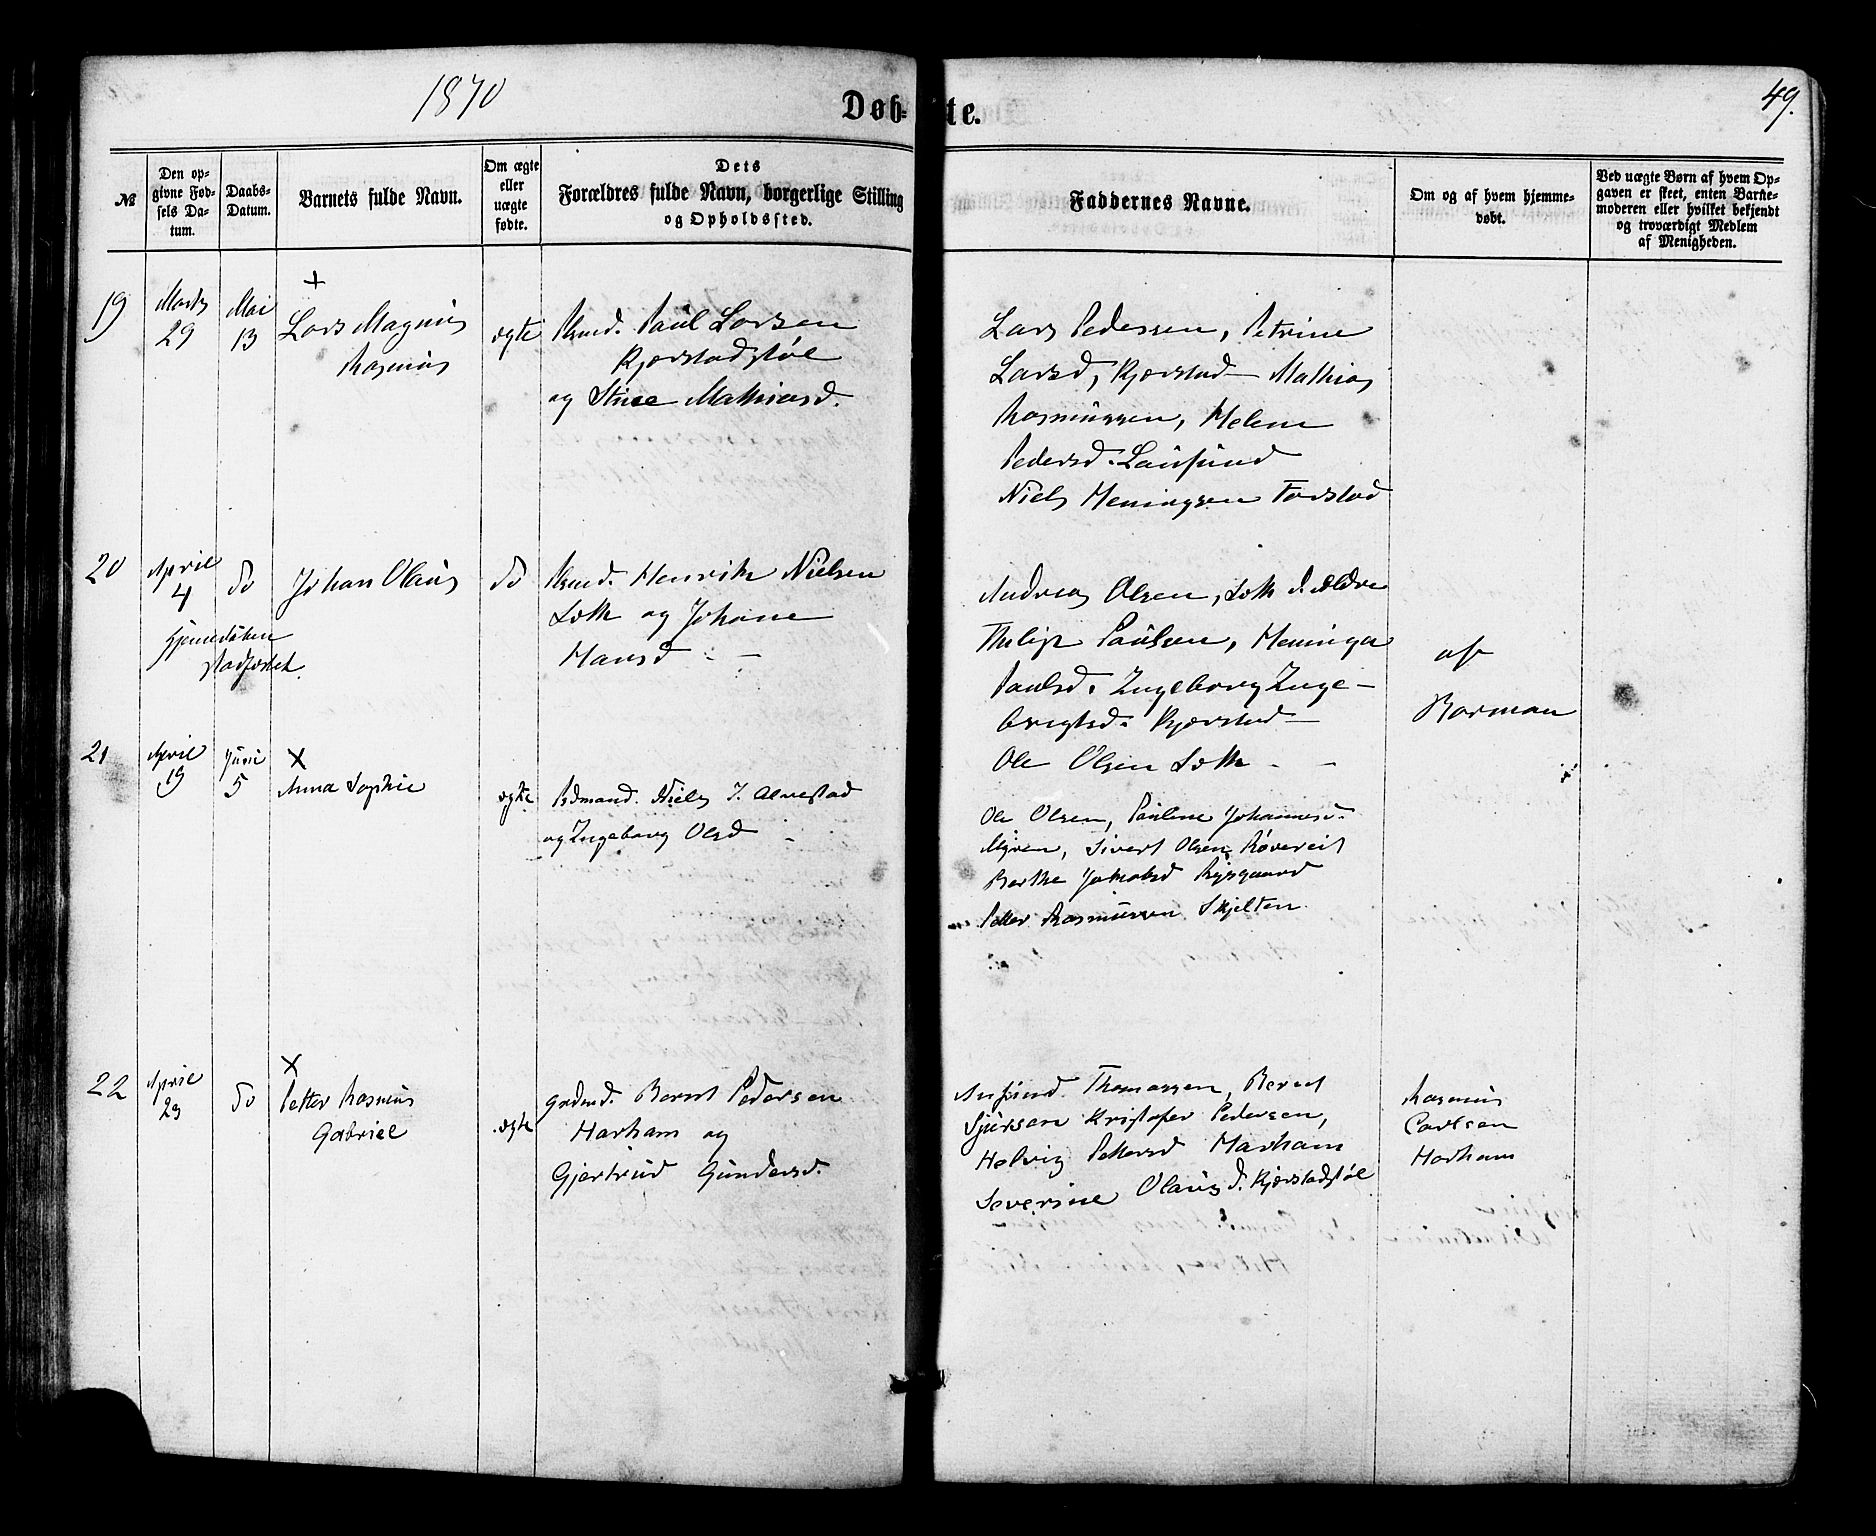 1870
Døb- te.
49.
№
Den op-
givne Fød-
sels Da-
tum.
Daabs-
Datum.
Barnets fulde Navn.
Om ægte
eller
uægte
fødte.
Dets
Forældres fulde Navn, borgerlige Stilling
og Opholdssted.
Faddernes Navne.
Om og af hvem hjemme-
døbt.
Ved uægte Børn af hvem Op-
gaven er skeet, enten Barne-
moderen eller hvilket bekjendt
og troværdigt Medlem
af Menigheden.
19
Marts
29
Mai
13
+
Lars Magnus
Rasmus
ægte
Paul Larsen
Kjærstadstøl
og Stine Mathiasd.
Lars Pedersen, Petrine
Larsd, Kjærstad - Mathias
Rasmussen, Helene
Pedersd. Lausund
Niels Heningsen Farstad
20
April
4
do
Hjemedåben
stadfæstet.
Johan Olaus
do
Henrik Nielsen
Løth og Johane
Hansd - -
Andreas Olsen, Løth d. ældre
Philip Paulsen, Heninga
Paulsd. Ingeborg Inge-
brigtsd. Kjærstad -
Ole Olsen Løth - -
af
Borman
21
April
19
Juni
5
x
Anna Sophie
ægte
Niels J. Alvestad
og Ingeborg Olsd -
Ole Olsen, Pauline Johannesd.
Myren, Sivert Olsen, Røvereit
Berthe Jakobsd Rysgaard
Petter Rasmussen Skjelten
22
April
23
do
x
Petter Rasmus
Gabriel
ægte
Gadmd. Bernt Pedersen
Harham og
Gjertrud Gundersd.
Anfind Thomassen, Berent
Sjursen Kristofer Pedersen,
Helvig Pettersd Harham
Severine Olausd. Kjærstadstøl
Rasmus
Carlsen
Harham